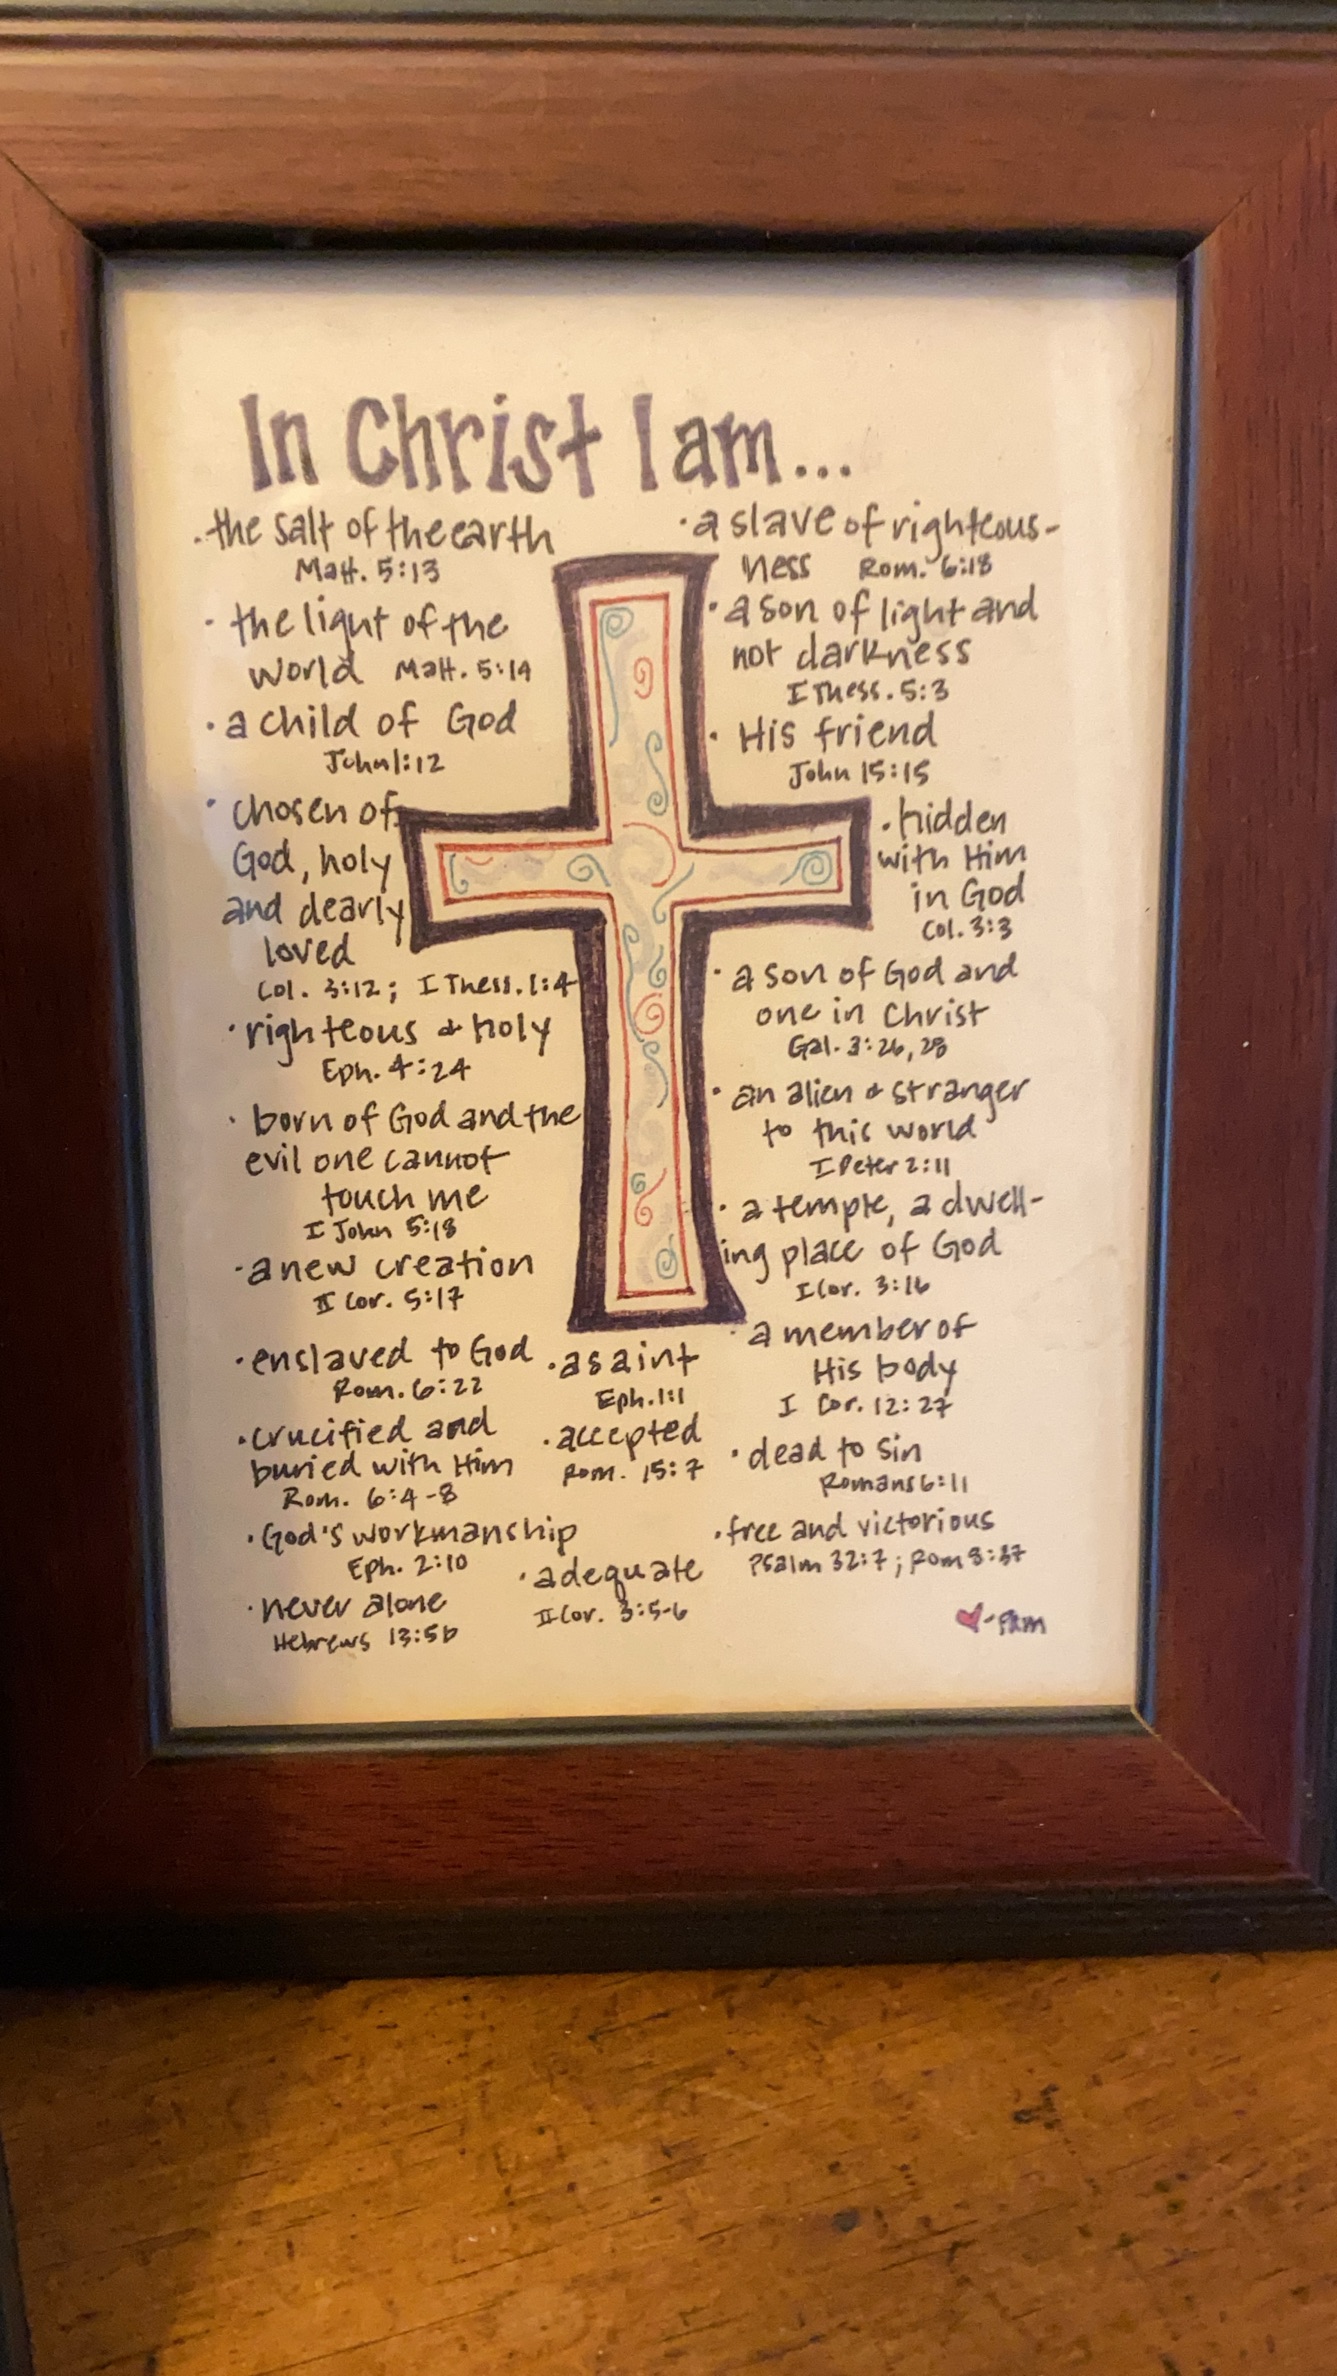 In Christ I am...
· the salt of the earth
Matt. 5:13
· the light of the
world Matt. 5:14
· a child of God
John 1:12
· chosen of
God, holy
and dearly
loved
Col. 3:12; I Thess. 1:4
· righteous & holy
Eph. 4:24
· born of God and the
evil one cannot
touch me
I John 5:18
· a new creation
II Cor. 5:17
· enslaved to God
Rom. 6:22
· crucified and
buried with Him
Rom. 6:4-8
· God's workmanship
Eph. 2:10
· never alone
Hebrews 13:5b
· a saint
Eph. 1:1
· accepted
Rom. 15:7
· adequate
II Cor. 3:5-6
· a slave of righteous-
ness Rom. 6:18
· a son of light and
not darkness
I Thess. 5:3
· His friend
John 15:15
· hidden
with Him
in God
Col. 3:3
· a son of God and
one in Christ
Gal. 3:26, 28
· an alien & stranger
to this world
I Peter 2:11
· a temple, a dwell-
ing place of God
I Cor. 3:16
· a member of
His body
I Cor. 12:27
· dead to sin
Romans 6:11
· free and victorious
Psalm 32:7; Rom 8:37
- Pam